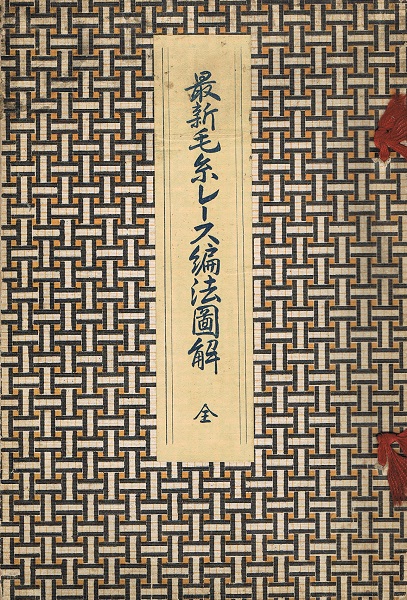 最新毛糸レース編法圖解 全